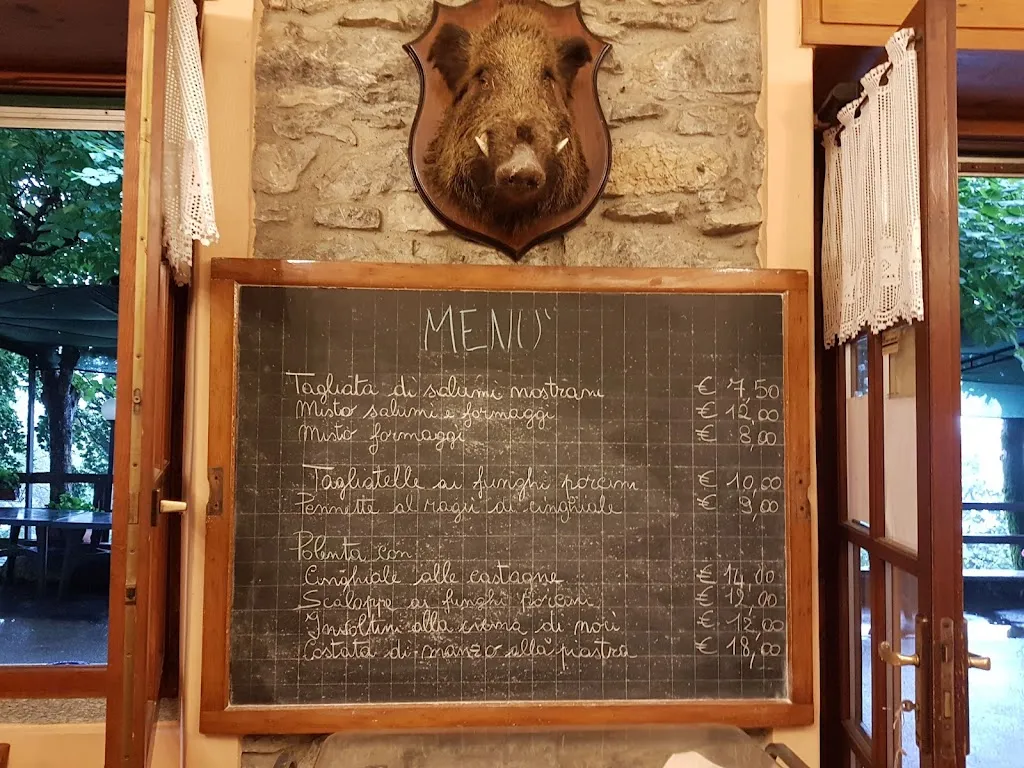 MENU'
Tagliata di salumi nostrani € 7,50
Misto salumi e formaggi € 12,00
Misto formaggi € 8,00
Tagliatelle ai funghi porcini € 10,00
Pennette al ragù di cinghiale € 9,00
Polenta con:
Cinghiale alle castagne € 14,00
Scaloppe ai funghi porcini € 12,00
Involtini alla crema di noci € 12,00
Costata di manzo alla piastra € 18,00